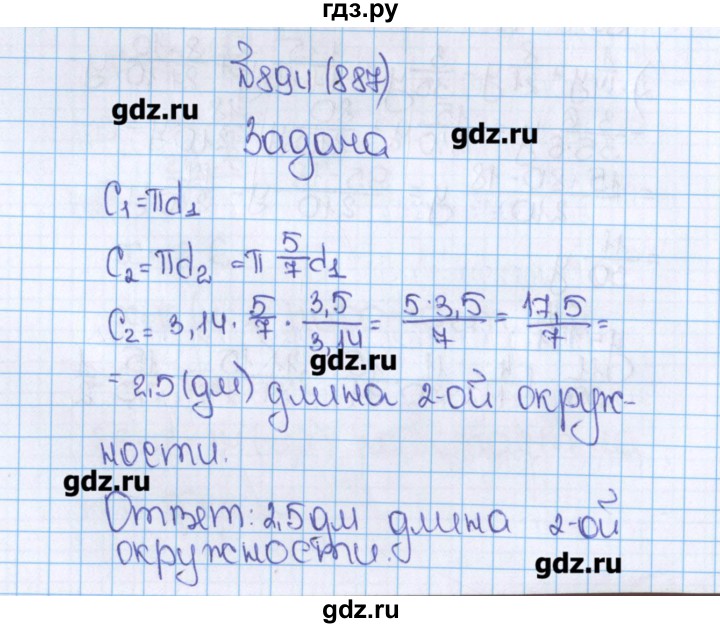 гдз.ру
№894 (887)
gdz.ru
gdz.ru
Задача
C₁=πd₁
C₂=πd₂ =π 5/7 d₁
C₂= 3,14 · 5/7 · 3,5/3,14 = 5·3,5/7 = 17,5/7 =
gdz.ru
= 2,5 (дм) длина 2-ой окруж-
ности.
gdz.ru
Ответ: 2,5 дм длина 2-ой
окружности.
gdz.ru
gdz.ru